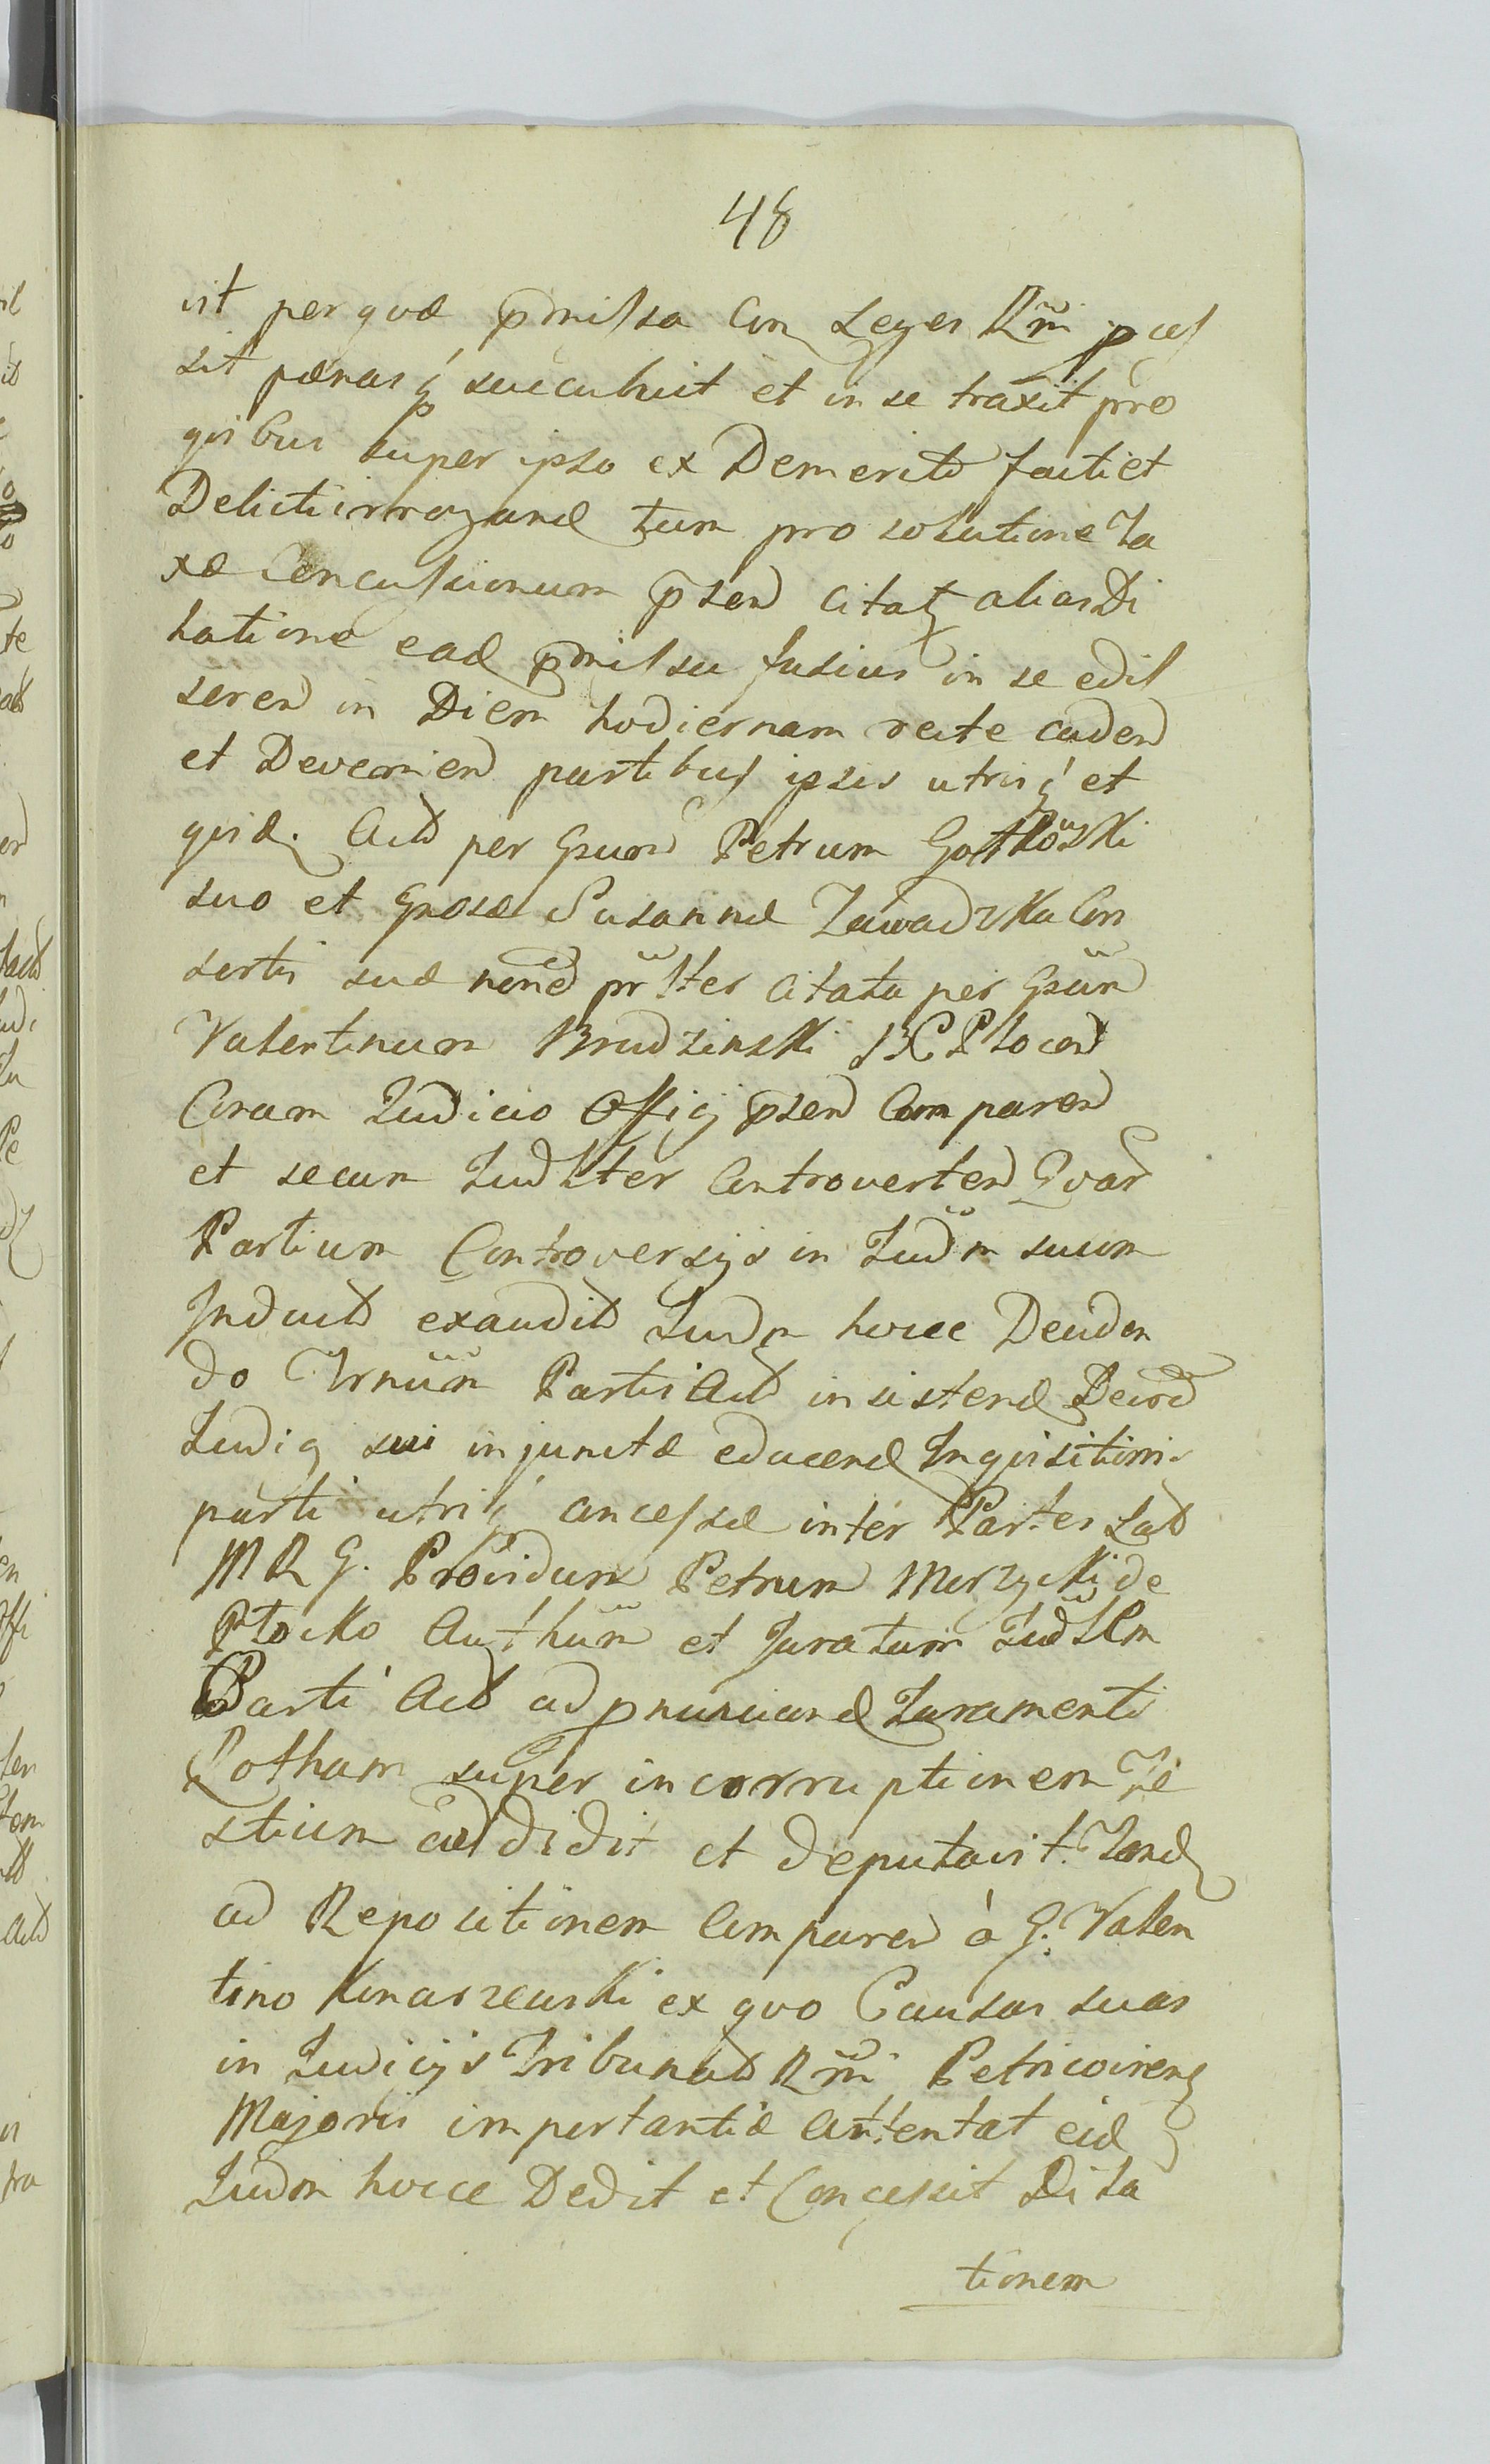 48
vit per quæ pmissa Con Leges Rm̃i pces
sit pænasq́ succubuit et in se traxit pro
quibus super ipso ex Demerito facti et
Delicti irrogand tum pro solutione Ta
xæ Concussionum psen citat alias Di
latione ead pmissu fusius in se edis
seren in Diem hodiernam recte caden
et Devenien partibus ipsis utrisq́ et
quid. Act per Gsum Petrum Gotkowski
suo et Gnosæ Susannæ Zawadzka Con
sortis suæ noñe pr̃lter citata per Gsum̃
Valentinum Brudzinski B C Plocen
Coram Judicio Officij psen Comparen
et secum Judlter Controverten Quar
Partium Controversijs in Jud̃m suum
Induct exaudit Judm hocce Deciden
do Trnum̃ Partis Act insistend Decr̃
Judicij sui injunctæ educend Inquisitioni
parti utriq́ concessæ inter Partes Lat
M R G. Providum Petrum Murzycki de
Plocko Authum̃ et Juratum Jud̃lem
Parti Act ad pnunciand Juramenti
Rotham super incorruptionem Te
stium addidit et deputavit. Tand
ad Repositionem Comparen à G. Valen
tino Kinaszewski ex quo Causas suas
in Judicijs Tribunat Rm̃i Petricoviens
Majoris importantiæ attentat eid
Judm hocce Dedit et Concessit Dila
tionem